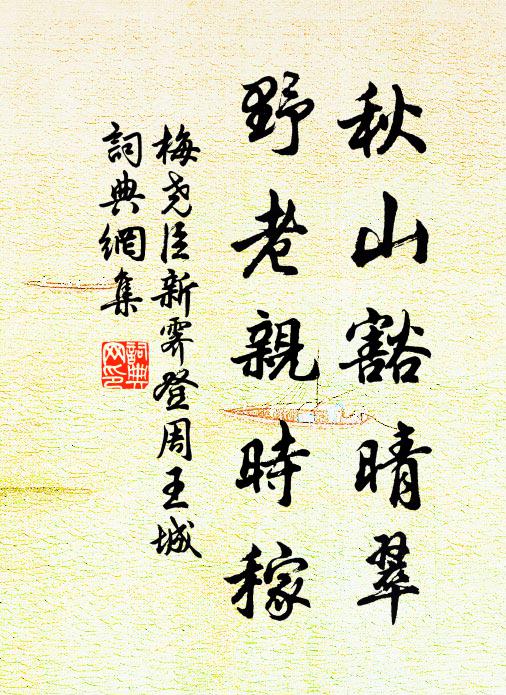 秋山豁晴翠
野老親時稼
梅尧臣新霽登周王城
詞典網集
詞典网印